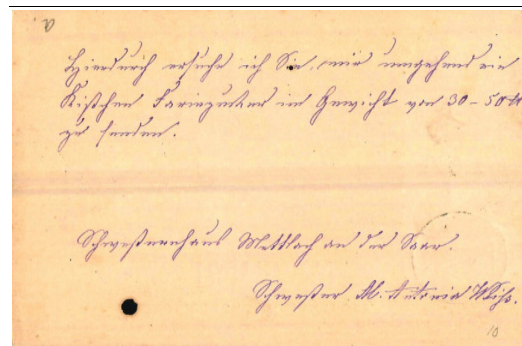 Hierdurch ersuche ich Sie, mir umgehend ein
Kistchen Farinzucker im Gewicht von 30-50 ℔
zu senden.
Schwesternhaus Mettlach an der Saar.
Schwester M. Antonia
10